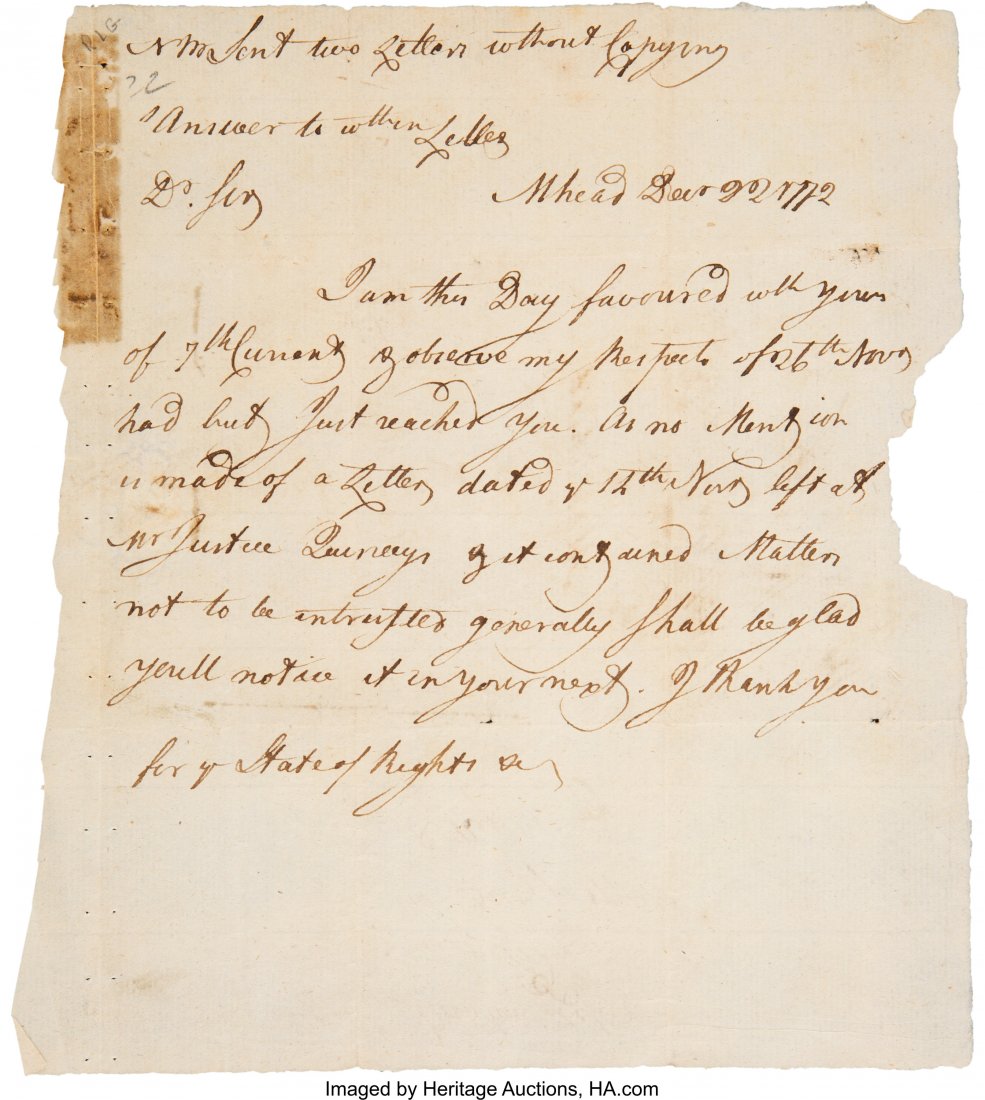 PLG
22
NB Sent two Letters without Copying
Answer to wthin Letter
Dr. Sir Mhead Decr 22 1772
I am this Day favoured wth yours
of 7th Current & observe my Respects of 26th Novr
had but Just reached you. As no Mention
is made of a Letter dated ye 14th Novr left at
Mr Justice Quinceys & it contained Matters
not to be intrusted generally shall be glad
youll notice it in your next. I thank you
for ye State of Rights &c
Imaged by Heritage Auctions, HA.com